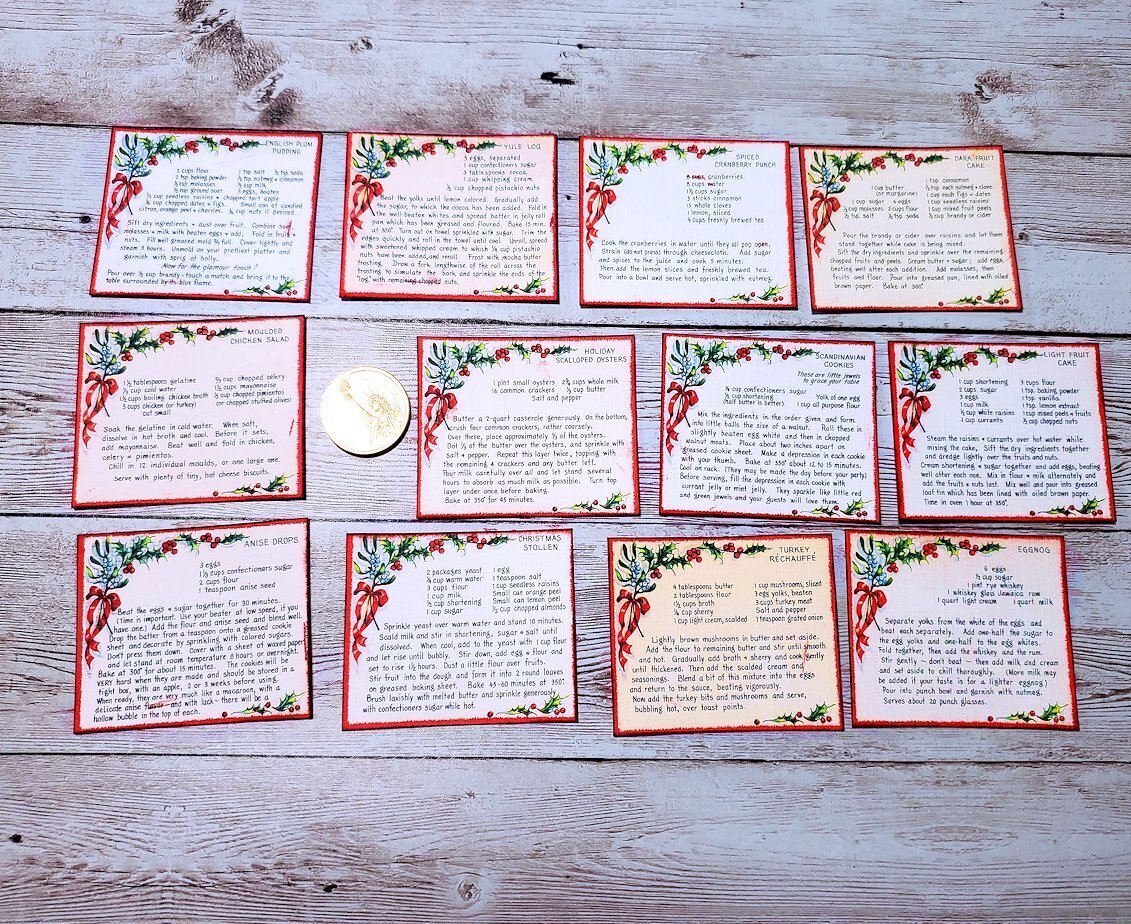 ENGLISH PLUM
PUDDING
2 cups flour
2 tsp. baking powder
½ cup molasses
½ cup ground suet
1 tsp. salt ½ tsp. soda
½ tsp. nutmeg + cinnamon
½ cup milk
3 eggs, beaten
½ cup seedless raisins + chopped tart apple
½ cup chopped dates + figs. Small can of candied
citron, orange peel + cherries. ½ cup nuts if desired.
Sift dry ingredients + dust over fruit. Combine suet,
molasses + milk with beaten eggs + add. Fold in fruit +
nuts. Fill well greased mold ⅔ full. Cover tightly and
steam 3 hours. Unmold on your prettiest platter and
garnish with sprig of holly.
Now for the glamour touch!
Pour over ½ cup brandy - touch a match and bring it to the
table surrounded by its blue flame.
YULE LOG
3 eggs, separated
1 cup confectioners sugar
3 tablespoons cocoa
1 cup whipping cream
½ cup chopped pistachio nuts
Beat the yolks until lemon colored. Gradually add
the sugar, to which the cocoa has been added. Fold in
the well-beaten whites and spread batter in jelly roll
pan which has been greased and floured. Bake 15 min.
at 300° Turn out on towel sprinkled with sugar. Trim the
edges quickly and roll in the towel until cool. Unroll, spread
with sweetened whipped cream to which ¼ cup pistachio
nuts have been added, and reroll. Frost with mocha butter
frosting. Draw a fork lengthwise of the roll across the
frosting to simulate the bark and sprinkle the ends of the
log with remaining chopped nuts.
SPICED
CRANBERRY PUNCH
cups, cranberries
5 cups water
1½ cups sugar
3 sticks cinnamon
5 whole cloves
1 lemon, sliced
4 cups freshly brewed tea
Cook the cranberries in water until they all pop open.
Strain (do not press) through cheesecloth. Add sugar
and spices to the juice and cook 5 minutes.
Then add the lemon slices and freshly brewed tea.
Pour into a bowl and serve hot, sprinkled with nutmeg.
DARK FRUIT
CAKE
1 cup butter
(or margarine)
1 cup sugar 6 eggs
½ cup molasses 2 cups flour
½ tsp. salt ½ tsp. soda
1 tsp. cinnamon
½ tsp. each nutmeg + clove
1 cup each figs + dates
1 cup seedless raisins
1 cup mixed fruit peels
½ cup brandy or cider
Pour the brandy or cider over raisins and let them
stand together while cake is being mixed.
Sift the dry ingredients and sprinkle over the remaining
chopped fruits and peels. Cream butter + sugar, add eggs,
beating well after each addition. Add molasses, then
fruits and flour. Pour into greased pan, lined with oiled
brown paper. Bake at 300°.
MOULDED
CHICKEN SALAD
1½ tablespoons gelatine
¼ cup cold water
1½ cups boiling chicken broth
3 cups chicken (or turkey)
cut small
⅔ cup chopped celery
1½ cups mayonnaise
½ cup chopped pimientos
(or chopped stuffed olives)
Soak the gelatine in cold water. When soft,
dissolve in hot broth and cool. Before it sets,
add mayonnaise. Beat well and fold in chicken,
celery + pimientos.
Chill in 12 individual moulds, or one large one.
Serve with plenty of tiny, hot cheese biscuits.
HOLIDAY
SCALLOPED OYSTERS
1 pint small oysters 2¾ cups whole milk
16 common crackers ½ cup butter
Salt and pepper
Butter a 2-quart casserole generously. On the bottom,
crush four common crackers, rather coarsely.
Over these, place approximately ⅓ of the oysters.
Dot ⅓ of the butter over the oysters, and sprinkle with
Salt + pepper. Repeat this layer twice, topping with
the remaining 4 crackers and any butter left.
Pour milk carefully over all and let stand several
hours to absorb as much milk as possible. Turn top
layer under once before baking.
Bake at 350° for 45 minutes.
SCANDINAVIAN
COOKIES
These are little jewels
to grace your table
¾ cup confectioners sugar
½ cup shortening
(half butter is better)
Yolk of one egg
1 cup all purpose flour
Mix the ingredients in the order given, and form
into little balls the size of a walnut. Roll these in
slightly beaten egg white and then in chopped
walnut meats. Place about two inches apart on
greased cookie sheet. Make a depression in each cookie
with your thumb. Bake at 350° about 12 to 15 minutes.
Cool on rack. (They may be made the day before your party)
Before serving, fill the depression in each cookie with
currant jelly or mint jelly. They sparkle like little red
and green jewels and your guests will love them.
LIGHT FRUIT
CAKE
1 cup shortening
2 cups sugar
3 eggs
1 cup milk
½ cup white raisins
½ cup currants
3 cups flour
1 tsp. baking powder
1 tsp. vanilla
1 tsp. lemon extract
1 cup mixed peels + fruits
½ cup chopped nuts
Steam the raisins + currants over hot water while
mixing the cake. Sift the dry ingredients together
and dredge lightly over the fruits and nuts.
Cream shortening + sugar together and add eggs, beating
well after each one. Mix in flour + milk alternately and
add the fruits + nuts last. Mix well and pour into greased
loaf tin which has been lined with oiled brown paper.
Time in oven 1 hour at 350°.
ANISE DROPS
3 eggs
1½ cups confectioners sugar
2 cups flour
1 teaspoon anise seed
Beat the eggs + sugar together for 30 minutes.
(Time is important. Use your beater at low speed, if you
have one.) Add the flour and anise seed and blend well.
Drop the batter from a teaspoon onto a greased cookie
sheet and decorate by sprinkling with colored sugars.
Don't press them down. Cover with a sheet of waxed paper
and let stand at room temperature 8 hours or overnight.
Bake at 300° for about 15 minutes. The cookies will be
VERY hard when they are made and should be stored in a
tight box, with an apple, 2 or 3 weeks before using.
When ready, they are very much like a macaroon, with a
delicate anise flavor - and with luck - there will be a
hollow bubble in the top of each.
CHRISTMAS
STOLLEN
2 packages yeast
¼ cup warm water
3 cups flour
1 cup milk
½ cup shortening
½ cup sugar
1 egg
1 teaspoon salt
1 cup seedless raisins
Small can orange peel
Small can lemon peel
½ cup chopped almonds
Sprinkle yeast over warm water and stand 10 minutes.
Scald milk and stir in shortening, sugar + salt until
dissolved. When cool, add to the yeast with 1 cup flour
and let rise until bubbly. Stir down, add egg + flour and
set to rise 1½ hours. Dust a little flour over fruits.
Stir fruit into the dough and form it into 2 round loaves
on greased baking sheet. Bake 45-60 minutes at 350°.
Brush lavishly with melted butter and sprinkle generously
with confectioners sugar while hot.
TURKEY
RÉCHAUFFÉ
4 tablespoons butter
2 tablespoons flour
1½ cups broth
¼ cup sherry
1 cup light cream, scalded
1 cup mushrooms, sliced
3 egg yolks, beaten
3 cups turkey meat
Salt and pepper
1 teaspoon grated onion
Lightly brown mushrooms in butter and set aside.
Add the flour to remaining butter and stir until smooth
and hot. Gradually add broth + sherry and cook gently
until thickened. Then add the scalded cream and
seasonings. Blend a bit of this mixture into the eggs
and return to the sauce, beating vigorously.
Now add the turkey bits and mushrooms and serve,
bubbling hot, over toast points.
EGGNOG
6 eggs
½ cup sugar
1 pint rye whiskey
1 whiskey glass Jamaica rum
1 quart light cream 1 quart milk
Separate yolks from the white of the eggs and
beat each separately. Add one-half the sugar to
the egg yolks and one-half to the egg whites.
Fold together, then add the whiskey and the rum.
Stir gently - don't beat - then add milk and cream
and set aside to chill thoroughly. (More milk may
be added if your taste is for a lighter eggnog)
Pour into punch bowl and garnish with nutmeg.
Serves about 20 punch glasses.